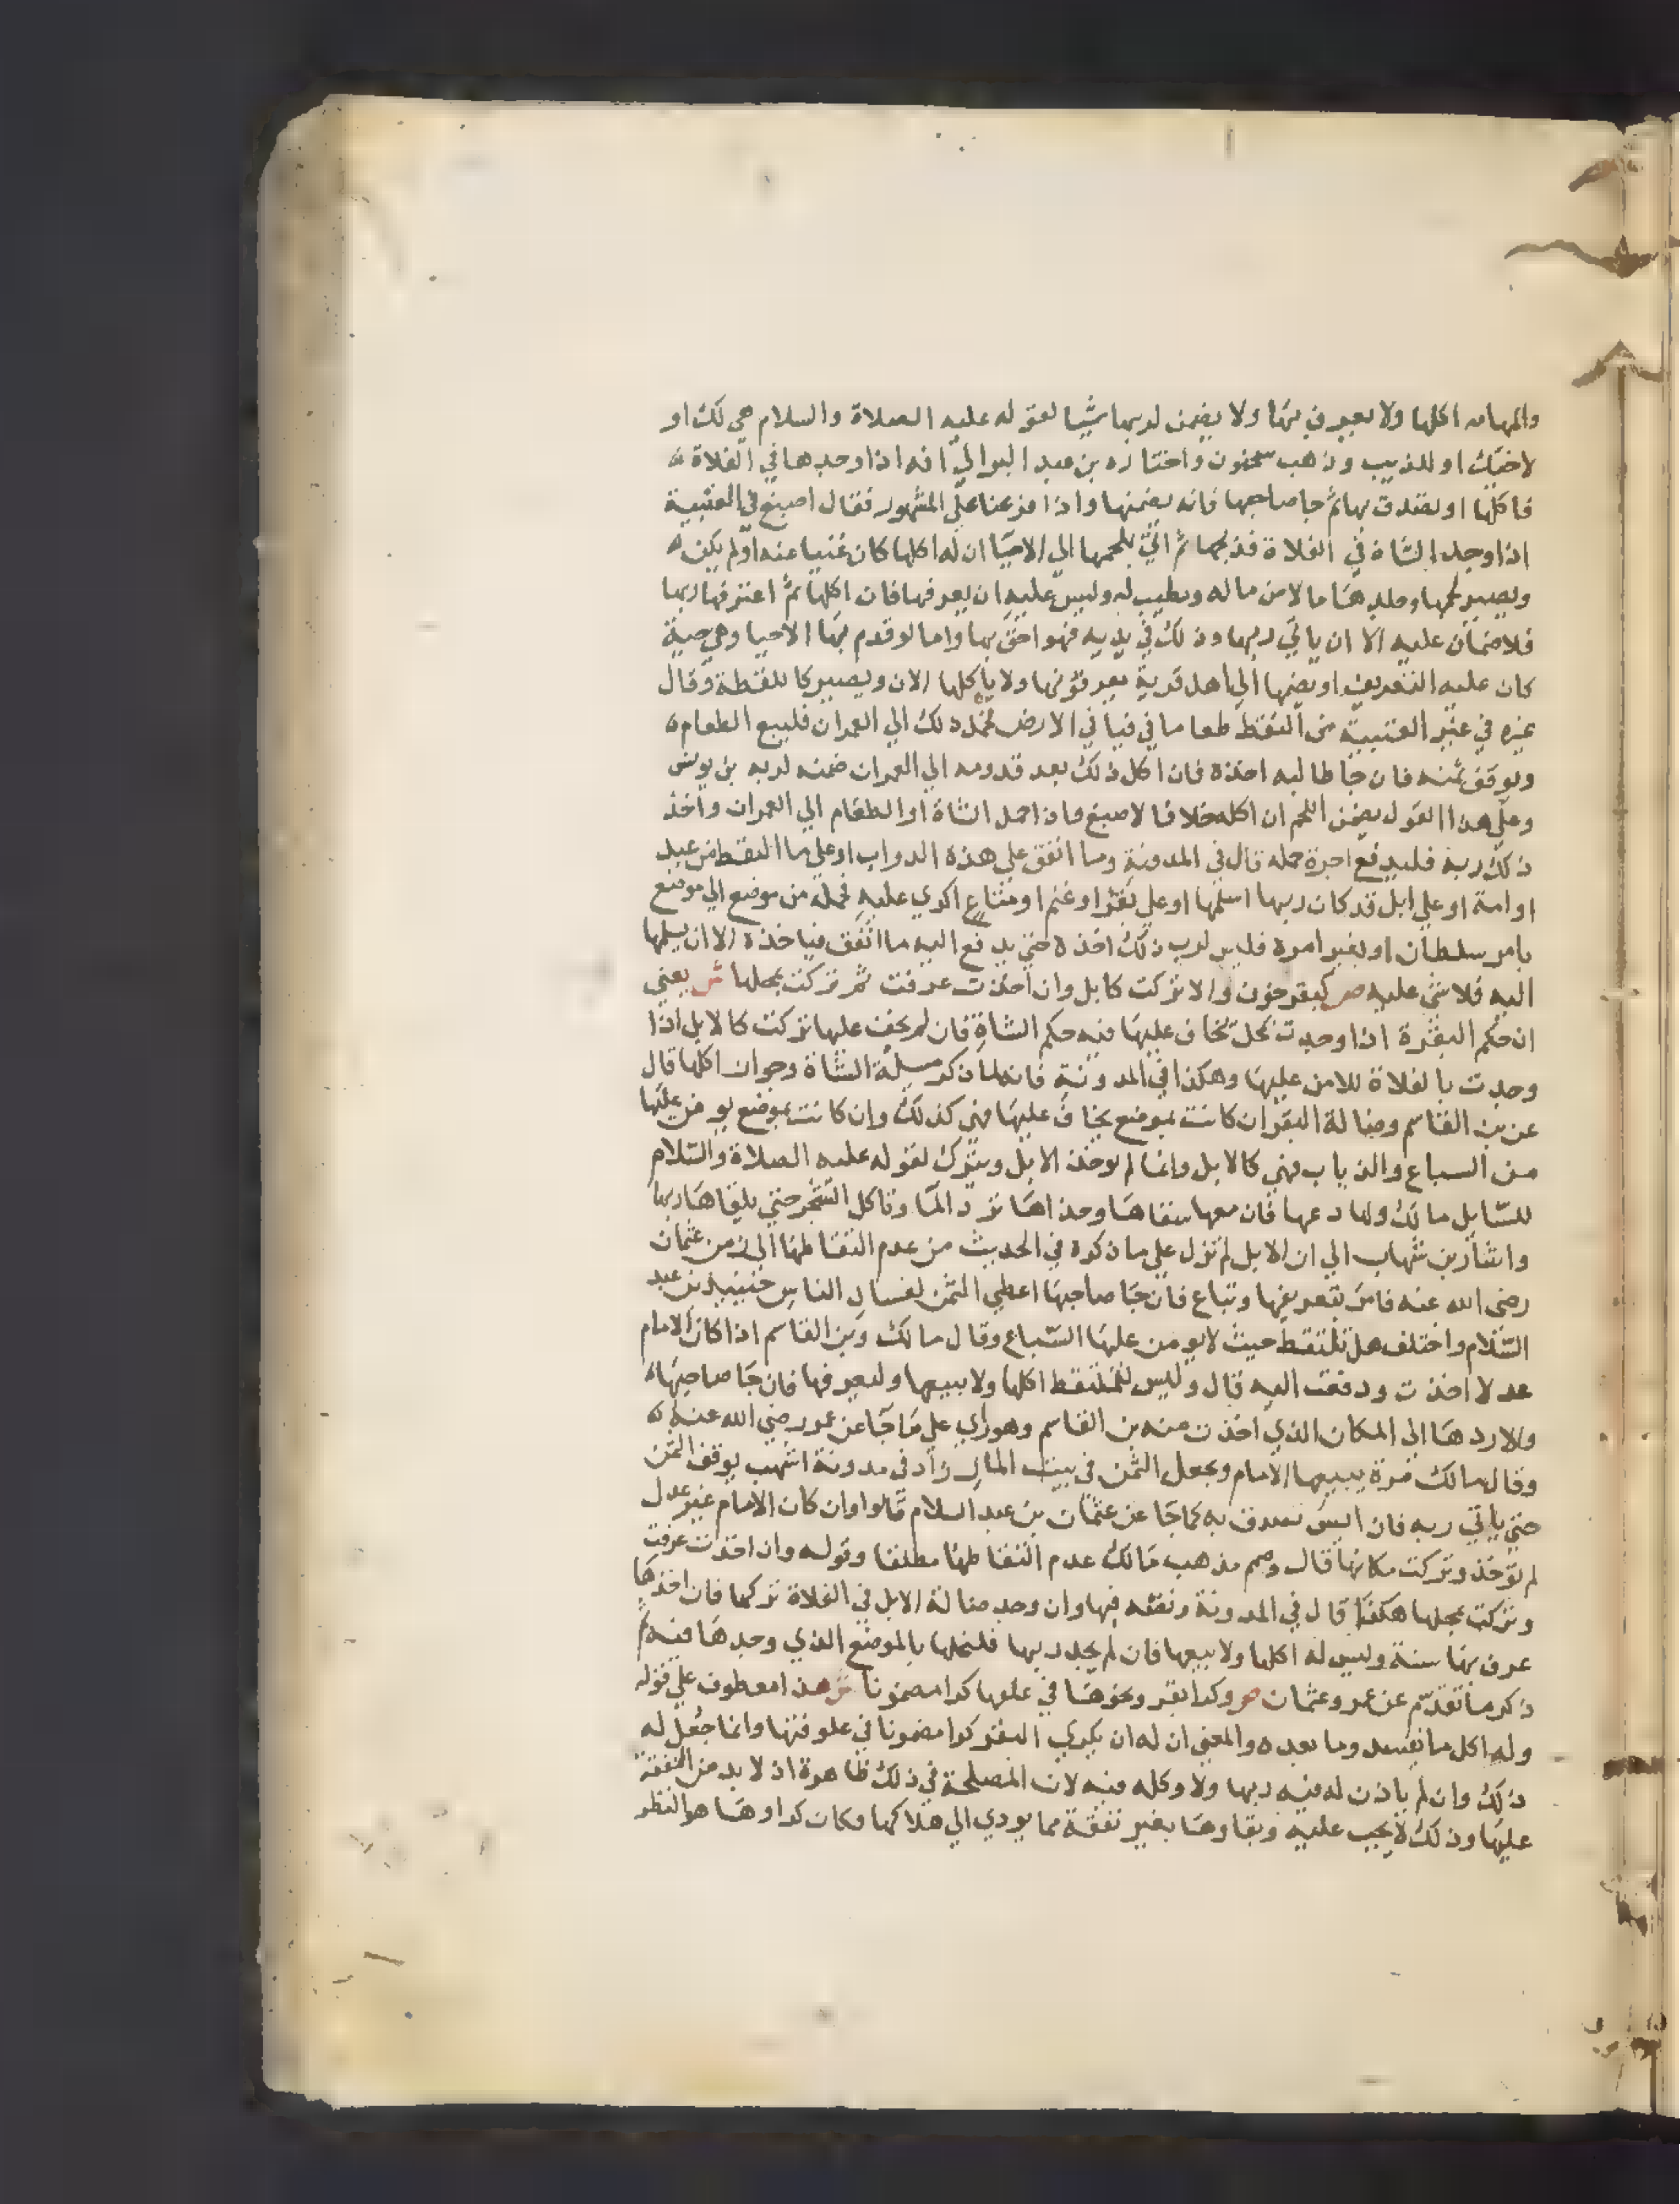 والمهامه اكلها ولا يعرف بها ولا يضمن لربها شيا لقوله عليه الصلاة والسلام هي لك او
لاخيك او للذيب وذهب سحنون واختاره بن عبد البر الي انه اذا وجدها في الفلاة
فاكلها او تصدق بها ثم جا صاحبها فانه يضمنها واذا فرعنا علي المشهور فقال اصبغ في العتبية
اذا وجد الشاة في الفلاة فذبحها ثم اتي بلحمها الي الاحيا ان له اكلها كان غنيا عنه او لم يكن
ويصير لحمها وجلدها مالا من ماله ويطيب له وليس عليه ان يعرفها فان اكلها ثم اعترفها ربها
فلا ضمان عليه الا ان ياتي ربها وذلك في يديه فهو احق بها واما لو قدم بها الاحيا وهي حية
كان عليه التعريف او يضمها الي اهل قرية يعرفونها ولا ياكلها الان ويصير كاللقطة وقال
غيره في غير العتبية من التقط طعاما في فيافي الارض فحمل ذلك الي العمران فليبع الطعام
ويوقف ثمنه فان جا طالبه اخذه فان اكل ذلك بعد قدومه الي العمران ضمنه لربه بن يونس
وعلي هذا القول يضمن اللحم ان اكله خلافا لاصبغ فاذا حمل الشاة او الطعام الي العمران واخذ
ذلك ربه فليدفع اجرة حمله قال في المدونة وما انفق علي هذه الدواب او علي ما التقط من عبد
او امة او علي ابل قد كان ربها اسلمها او علي بقر او غنم او متاع اكري عليه فحمله من موضع الي موضع
بامر سلطان او بغير امره فليس لرب ذلك اخذه حتي يدفع اليه ما انفق فياخذه الا ان يسلمها
اليه فلا شي عليه ص كبقر خوف والا تركت كابل وان اخذت عرفت ثم تركت بمحلها ش يعني
ان حكم البقرة اذا وجدت بمحل يخاف عليها فيه حكم الشاة فان لم يخف عليها تركت كالابل اذا
وجدت بالفلاة للامن عليها وهكذا في المدونة فانه لما ذكر مسيلة الشاة وجواز اكلها قال
عن بن القاسم وضالة البقر ان كانت بموضع يخاف عليها فهي كذلك وان كانت بموضع يومن عليها
من السباع والذياب فهي كالابل وانما لم يوخذ الابل ويترك لقوله عليه الصلاة والسلام
للسايل مالك ولها دعها فان معها سقاها وحذاها ترد الما وتاكل الشجر حتي يلقاها ربها
واشار بن شهاب الي ان الابل لم تزل علي ما ذكره في الحديث من عدم التقاطها الي زمن عثمان
رضي الله عنه فامر بتعريفها وتباع فان جا صاحبها اعطي الثمن لفساد الناس حينيذ بن عبد
السلام واختلف هل تلتقط حيث لا يومن عليها السباع وقال مالك وبن القاسم اذا كان الامام
عدلا اخذت ودفعت اليه قال وليس للملتقط اكلها ولا بيعها وليعرفها فان جا صاحبها
والا ردها الي المكان الذي اخذت منه بن القاسم وهو راي علي ما جا عن عمر رضي الله عنه
وقال مالك مرة يبيعها الامام ويجعل الثمن في بيت المال زاد في مدونة اشهب يوقف الثمن
حتي ياتي ربه فان ايس تصدق به كما جا عن عثمان بن عبد السلام قالوا وان كان الامام غير عدل
لم توخذ وتركت مكانها قال وصح مذهب مالك عدم التقاطها مطلقا وقوله وان اخذت عرفت
وتركت بمحلها هكذا قال في المدونة ونصه فيها وان وجد ضالة الابل في الفلاة تركها فان اخذها
عرف بها سنة وليس له اكلها ولا بيعها فان لم يجد ربها فليخلها بالموضع الذي وجدها فيه ثم
ذكر ما تقدم عن عمر وعثمان ص وكرا بقر ونحوها في علفها كرا مضمونا ش هذا معطوف علي قوله
وله اكل ما يفسد وما بعده والمعني ان له ان يكري البقر كرا مضمونا في علوفتها وانما جعل له
ذلك وان لم ياذن له فيه ربها ولا وكله فيه لان المصلحة في ذلك ظاهرة اذ لا بد من النفقة
عليها وذلك لا يجب عليه وبقاوها بغير نفقة مما يودي الي هلاكها فكان كراوها هو النظر